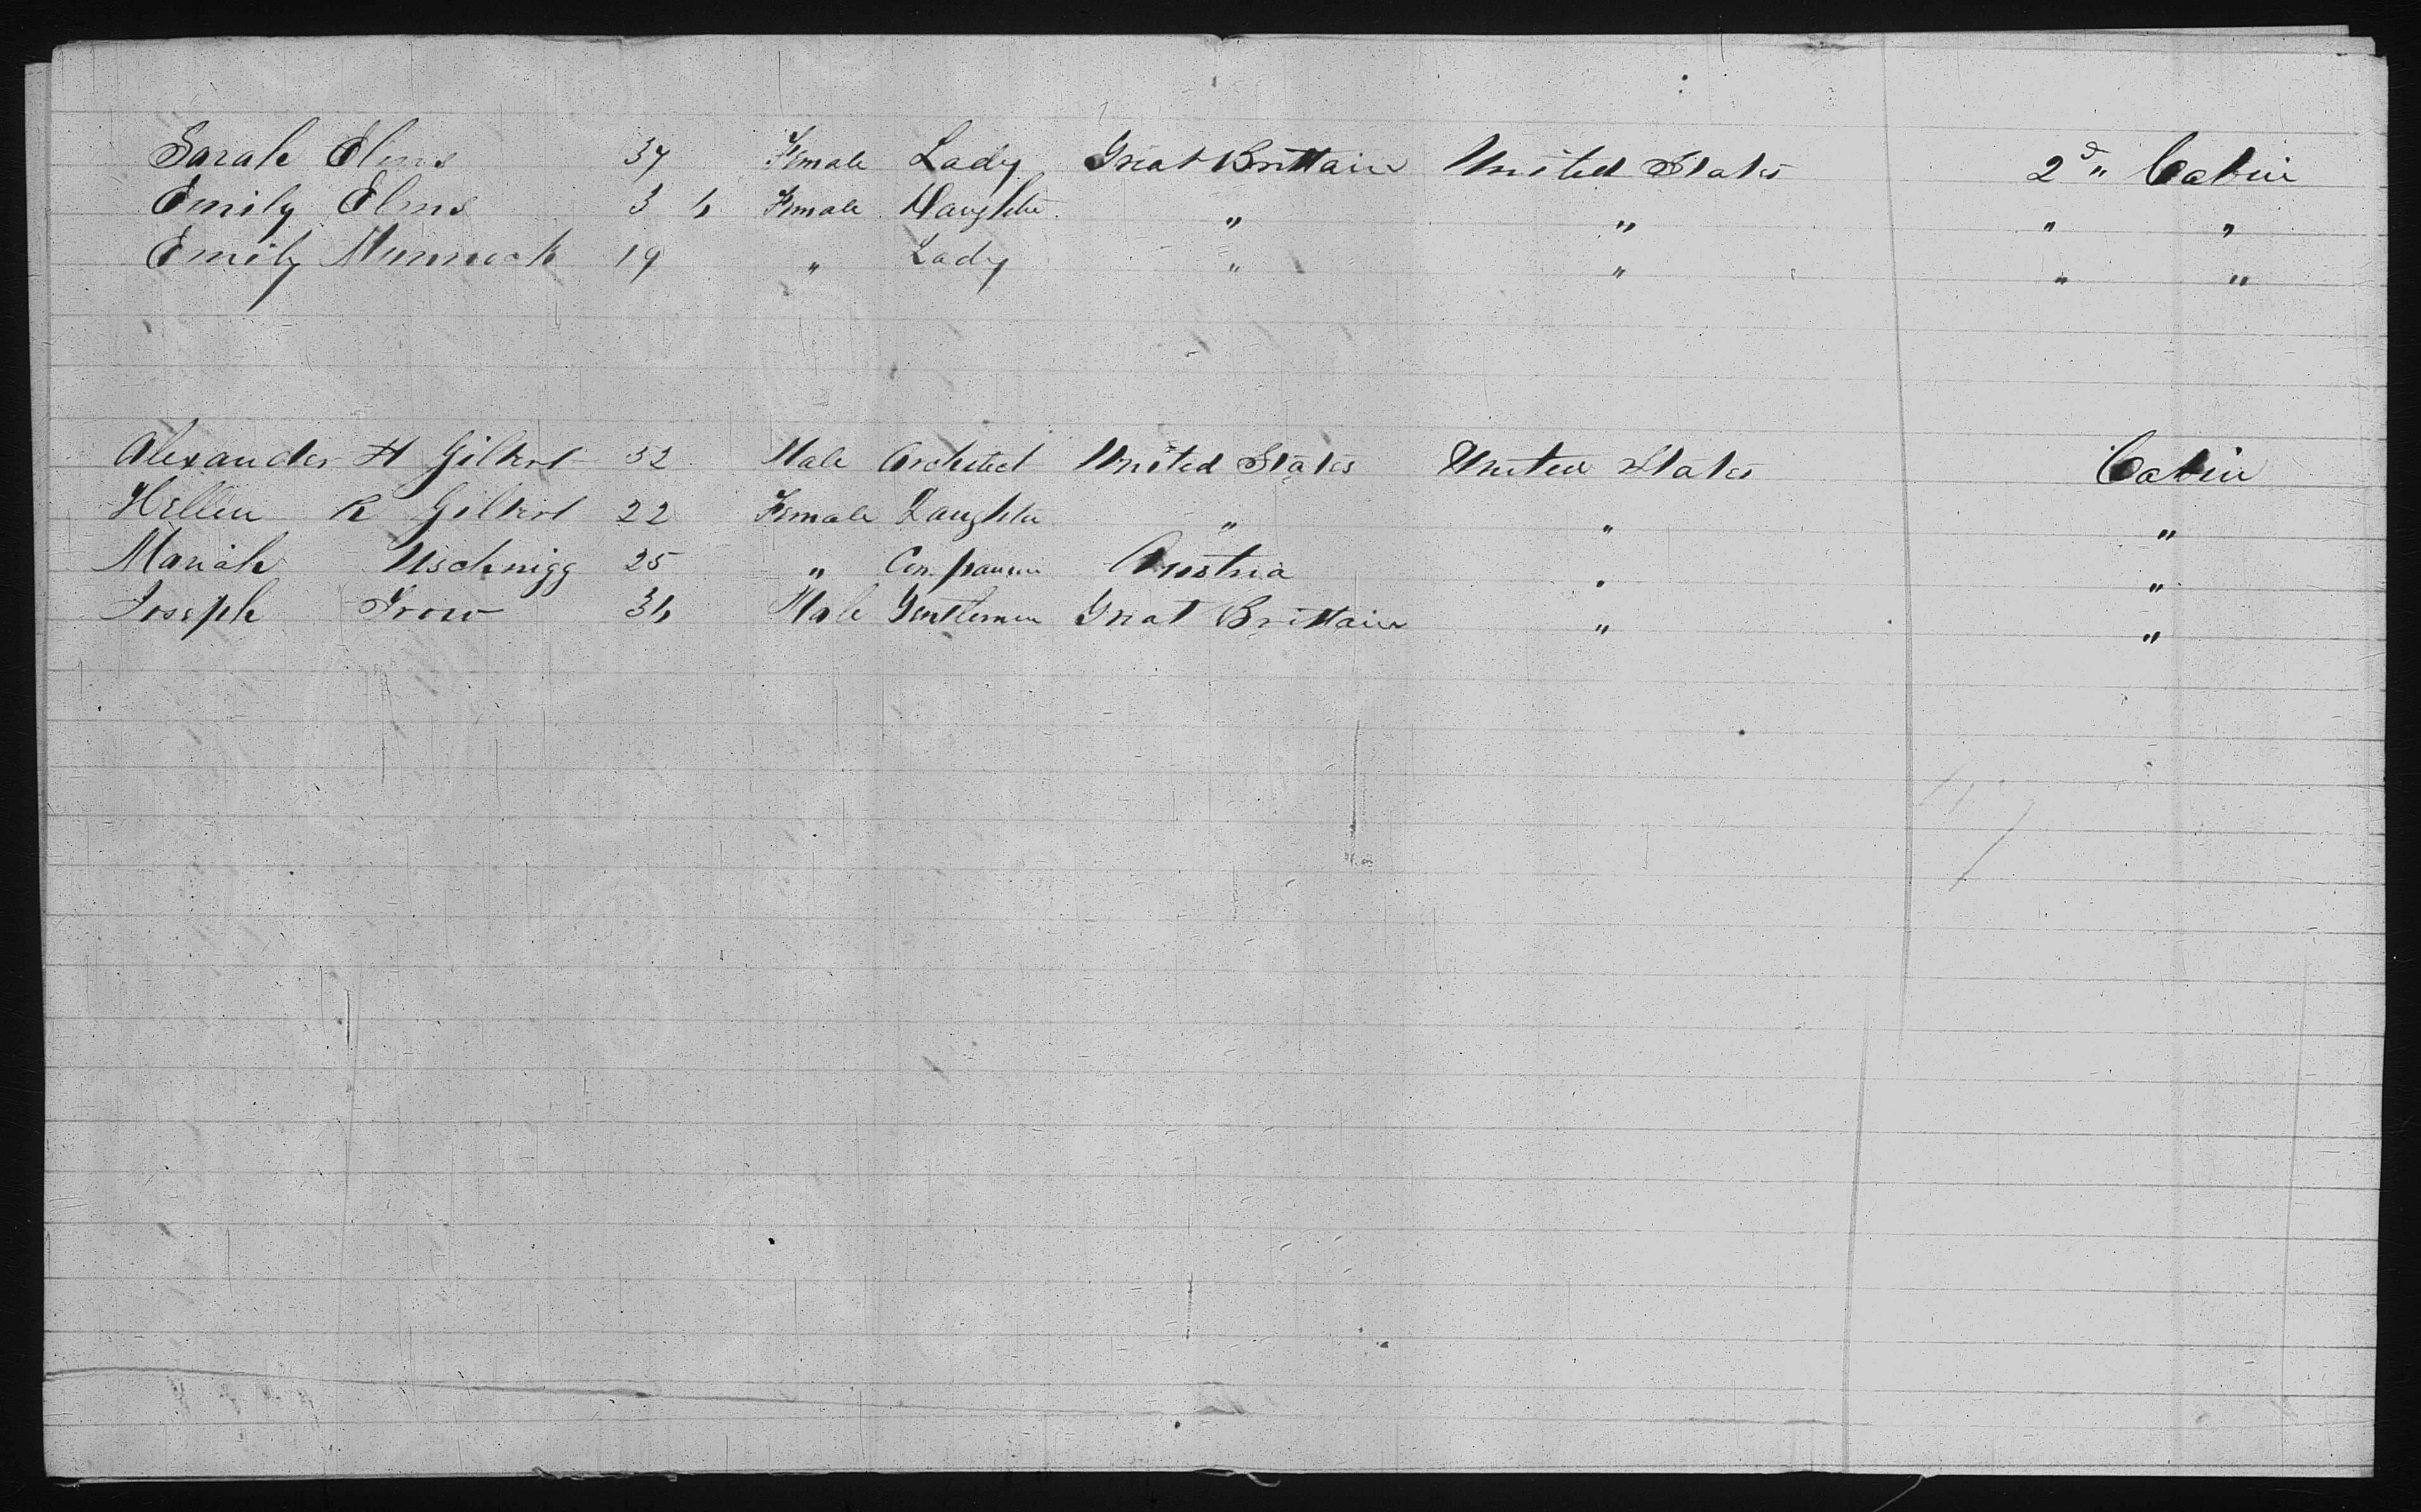 Sarah Elms 37 Female Lady Great Brittain United States 2d " Cabin
Emily Elms 3 6 Female Daughter " " " "
Emily Munnock 19 " Lady " " " "
Alexander H Gilbert 52 Male Architect United States United States Cabin
Hellen R Gilbert 22 Female Daughter " " "
Mariah Uschnigg 25 " Companion Austria " "
Joseph Trow 36 Male Gentlemen Great Brittain " "